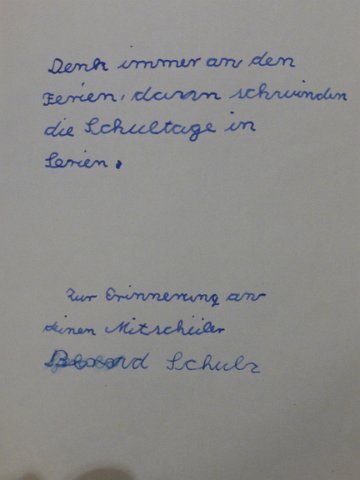 Denk immer an den
Ferien, dann schwinden
die Schultage in
Serien.
Zur Erinnerung an
deinen Mitschüler
Bernd Schulz